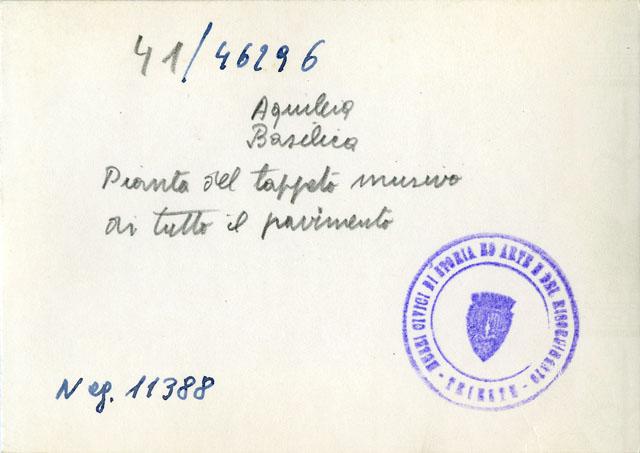 41/46296
Aquileia
Basilica
Pianta del tappeto musivo
di tutto il pavimento
MUSEI CIVICI DI STORIA ED ARTE E DEL RISORGIMENTO
- TRIESTE -
Neg. 11388